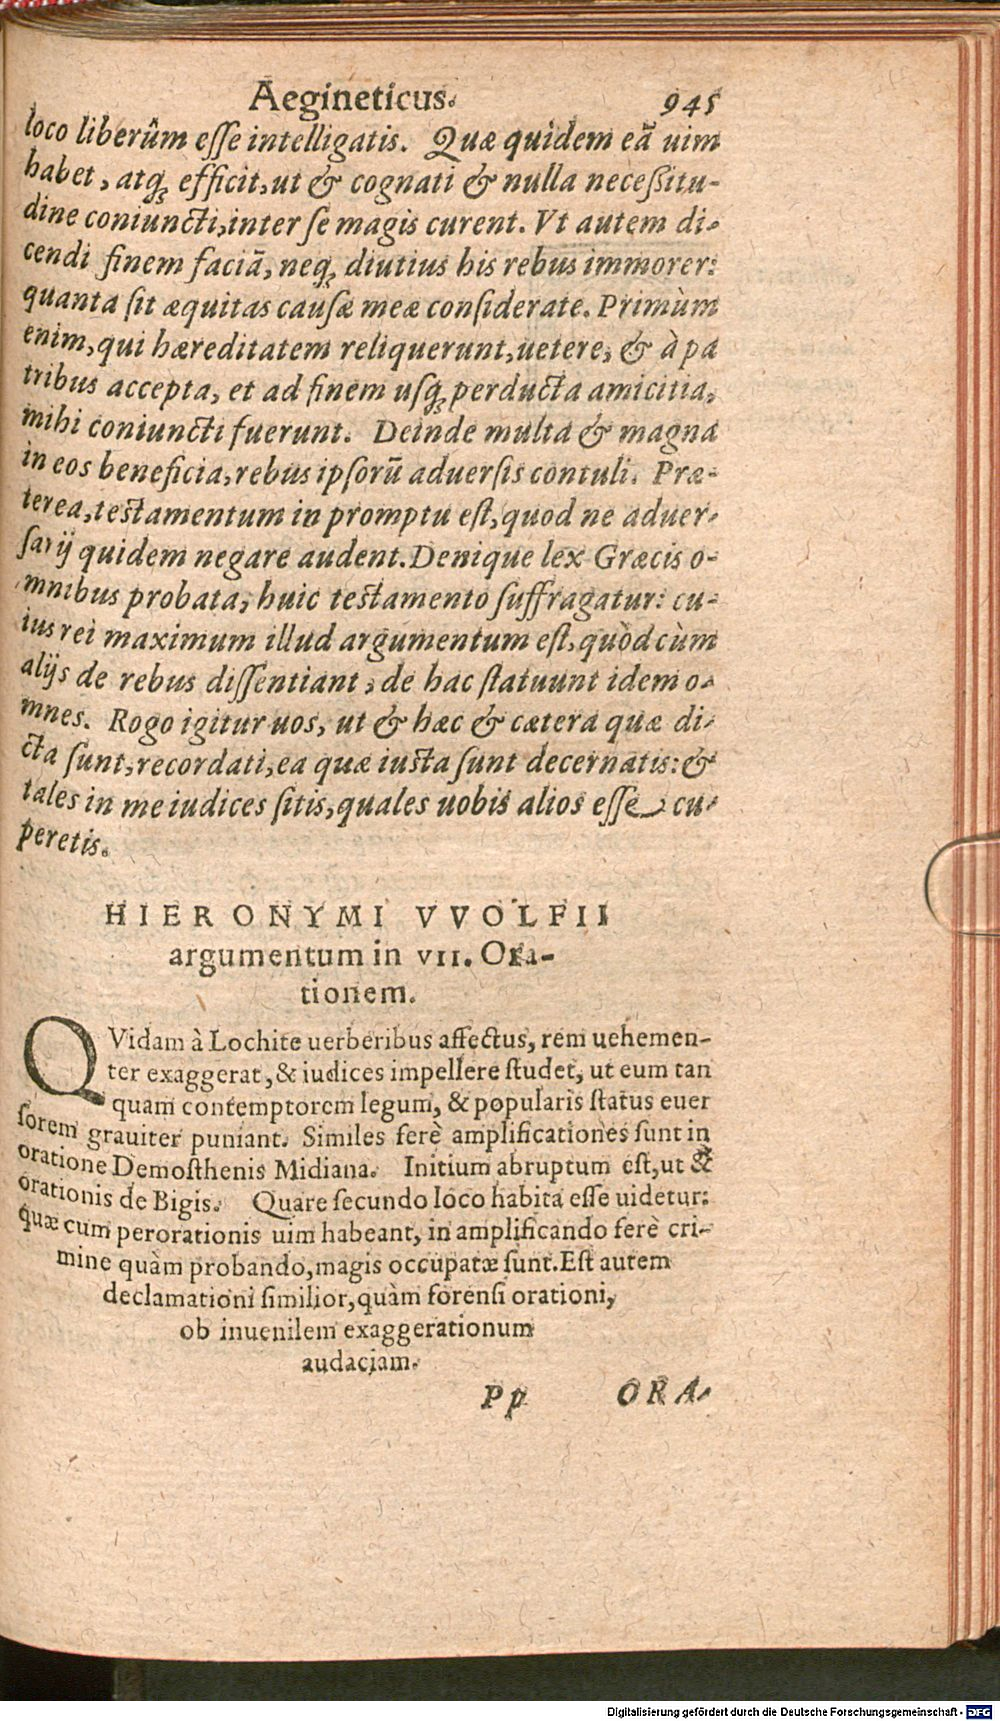 Aegineticus. 945
loco liberûm esse intelligatis. Quæ quidem eã uim
habet, atq; efficit, ut & cognati & nulla necessitu-
dine coniuncti, inter se magis curent. Vt autem di-
cendi finem faciã, neq; diutius his rebus immorer:
quanta sit æquitas causæ meæ considerate. Primùm
enim, qui hæreditatem reliquerunt, uetere, & à pa
tribus accepta, et ad finem usq; perducta amicitia,
mihi coniuncti fuerunt. Deinde multa & magna
in eos beneficia, rebus ipsorũ aduersis contuli. Præ-
terea, testamentum in promptu est, quod ne aduer-
sarij quidem negare audent. Denique lex Græcis o-
mnibus probata, huic testamento suffragatur: cu-
ius rei maximum illud argumentum est, quòd cùm
alijs de rebus dissentiant, de hac statuunt idem o-
mnes. Rogo igitur uos, ut & hæc & cætera quæ di-
cta sunt, recordati, ea quæ iusta sunt decernatis: &
tales in me iudices sitis, quales uobis alios esse cu-
peretis.
HIERONYMI VVOLFII
argumentum in VII. Ora-
tionem.
QVidam à Lochite uerberibus affectus, rem uehemen-
ter exaggerat, & iudices impellere studet, ut eum tan
quam contemptorem legum, & popularis status euer
sorem grauiter puniant. Similes ferè amplificationes sunt in
oratione Demosthenis Midiana. Initium abruptum est, ut &
orationis de Bigis. Quare secundo loco habita esse uidetur:
quæ cum perorationis uim habeant, in amplificando ferè cri-
mine quàm probando, magis occupatæ sunt. Est autem
declamationi similior, quàm forensi orationi,
ob iuuenilem exaggerationum
audaciam.
Pp ORA-
Digitalisierung gefördert durch die Deutsche Forschungsgemeinschaft - DFG